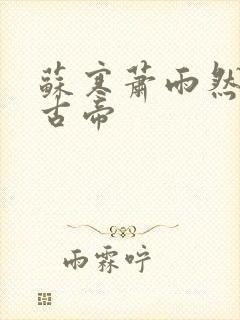 蘇寒蕭雨然
古帝
雨霖咛